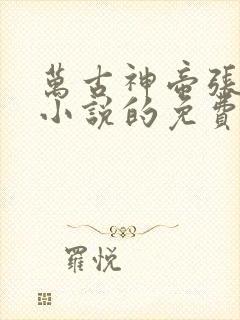 萬古神帝張
小說的免費
羅悅